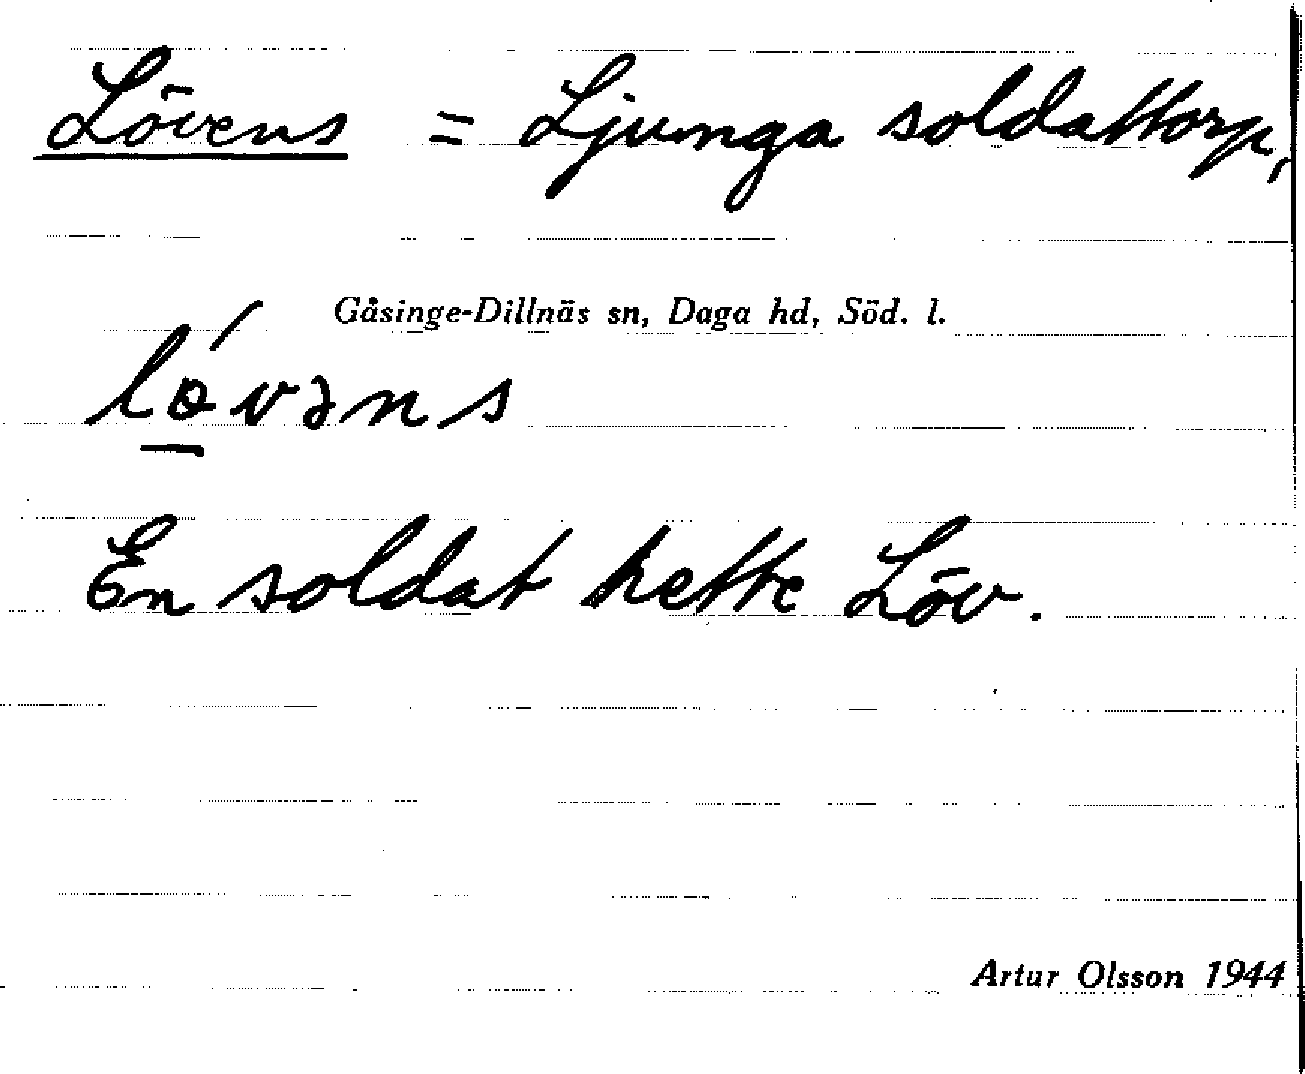 Lövens = Ljunga soldattorp,
Gåsinge-Dillnäs sn, Daga hd, Söd. l.
lö́vəns
En soldat hette Löv.
Artur Olsson 1944